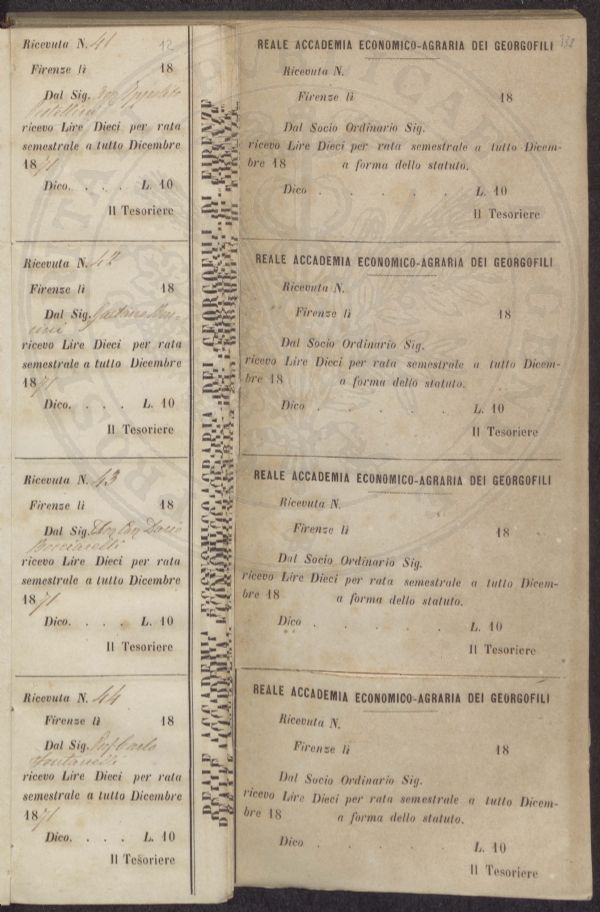 Ricevuta N. 41 12
Firenze lì 18
Dal Sig.
ricevo Lire Dieci per rata
semestrale a tutto Dicembre
1871
Dico. . . . L. 10
Il Tesoriere
Ricevuta N. 42
Firenze lì 18
Dal Sig. Gaetano
ricevo Lire Dieci per rata
semestrale a tutto Dicembre
1871
Dico. . . . L. 10
Il Tesoriere
Ricevuta N. 43
Firenze lì 18
Dal Sig.
ricevo Lire Dieci per rata
semestrale a tutto Dicembre
1871
Dico. . . . L. 10
Il Tesoriere
Ricevuta N. 44
Firenze lì 18
Dal Sig. Carlo
Fontanelli
ricevo Lire Dieci per rata
semestrale a tutto Dicembre
1871
Dico. . . . L. 10
Il Tesoriere
REALE ACCADEMIA ECONOMICO-AGRARIA DEI GEORGOFILI DI FIRENZE
REALE ACCADEMIA ECONOMICO-AGRARIA DEI GEORGOFILI
Ricevuta N.
Firenze lì 18
Dal Socio Ordinario Sig.
ricevo Lire Dieci per rata semestrale a tutto Dicem-
bre 18 a forma dello statuto.
Dico . . . . . L. 10
Il Tesoriere
REALE ACCADEMIA ECONOMICO-AGRARIA DEI GEORGOFILI
Ricevuta N.
Firenze lì 18
Dal Socio Ordinario Sig.
ricevo Lire Dieci per rata semestrale a tutto Dicem-
bre 18 a forma dello statuto.
Dico . . . . . L. 10
Il Tesoriere
REALE ACCADEMIA ECONOMICO-AGRARIA DEI GEORGOFILI
Ricevuta N.
Firenze lì 18
Dal Socio Ordinario Sig.
ricevo Lire Dieci per rata semestrale a tutto Dicem-
bre 18 a forma dello statuto.
Dico . . . . . L. 10
Il Tesoriere
REALE ACCADEMIA ECONOMICO-AGRARIA DEI GEORGOFILI
Ricevuta N.
Firenze lì 18
Dal Socio Ordinario Sig.
ricevo Lire Dieci per rata semestrale a tutto Dicem-
bre 18 a forma dello statuto.
Dico . . . . . L. 10
Il Tesoriere